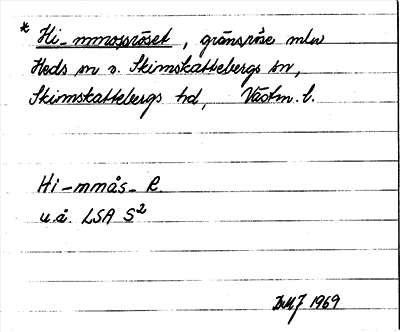 * Hi-mmosröset, gränsröse mlw
Heds sn o. Skinnskattebergs sn,
Skinnskattebergs hd, Västm. l.
Hi-mmås-R.
u.å. LSA S2
1969